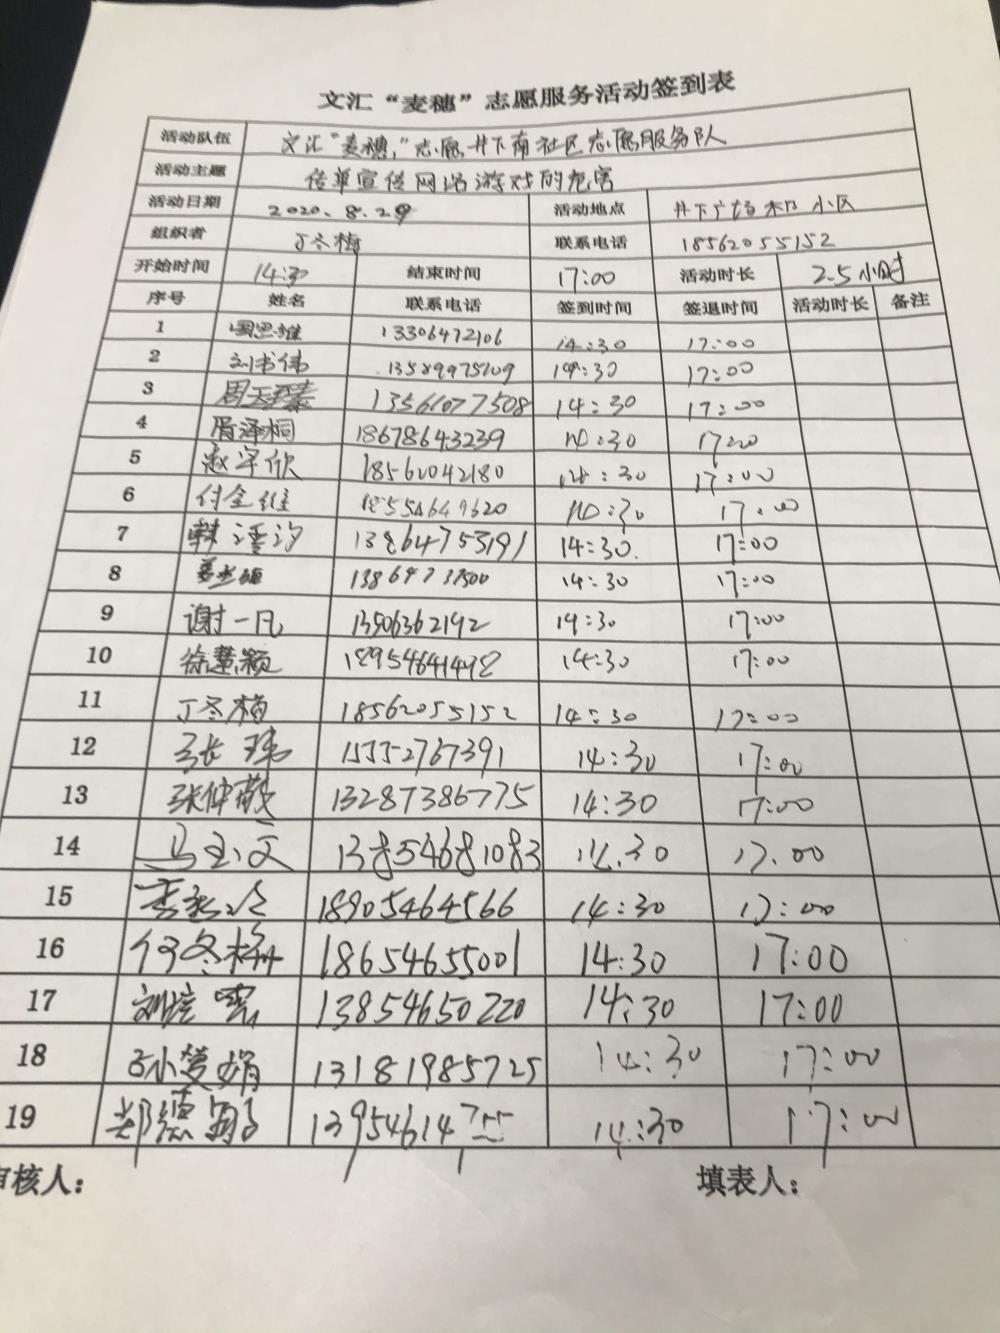 文汇“麦穗”志愿服务活动签到表
活动队伍 文汇“麦穗”志愿井下南社区志愿服务队
活动主题 传单宣传网络游戏的危害
活动日期 2020.8.29 活动地点 井下广场 小区
组织者 丁冬梅 联系电话 18562055152
开始时间 14:30 结束时间 17:00 活动时长 2.5小时
序号 姓名 联系电话 签到时间 签退时间 活动时长 备注
1 13306472106 14:30 17:00
2 刘书伟 13589975109 14:30 17:00
3 周天 13561077508 14:30 17:00
4 胥泽桐 18678643239 14:30 17:00
5 赵宇欣 18562042180 14:30 17:00
6 付金维 18554649620 14:30 17:00
7 韩 13864753191 14:30. 17:00
8 14:30 17:00
9 谢一凡 13506362192 14:30 17:00
10 徐慧颖 18954641498 14:30 17:00
11 丁冬梅 18562055152 14:30 17:00
12 张玮 15552767391 14:30 17:00
13 张仲敬 13287386775 14:30 17:00
14 马玉文 13854681083 14.30 17.00
15 18905464566 14:30 17:00
16 何冬梅 18654655001 14:30 17:00
17 刘 13854650220 14:30 17:00
18 孙楚娟 13181985725 14:30 17:00
19 郑德 13954614755 14:30 17:00
审核人： 填表人：